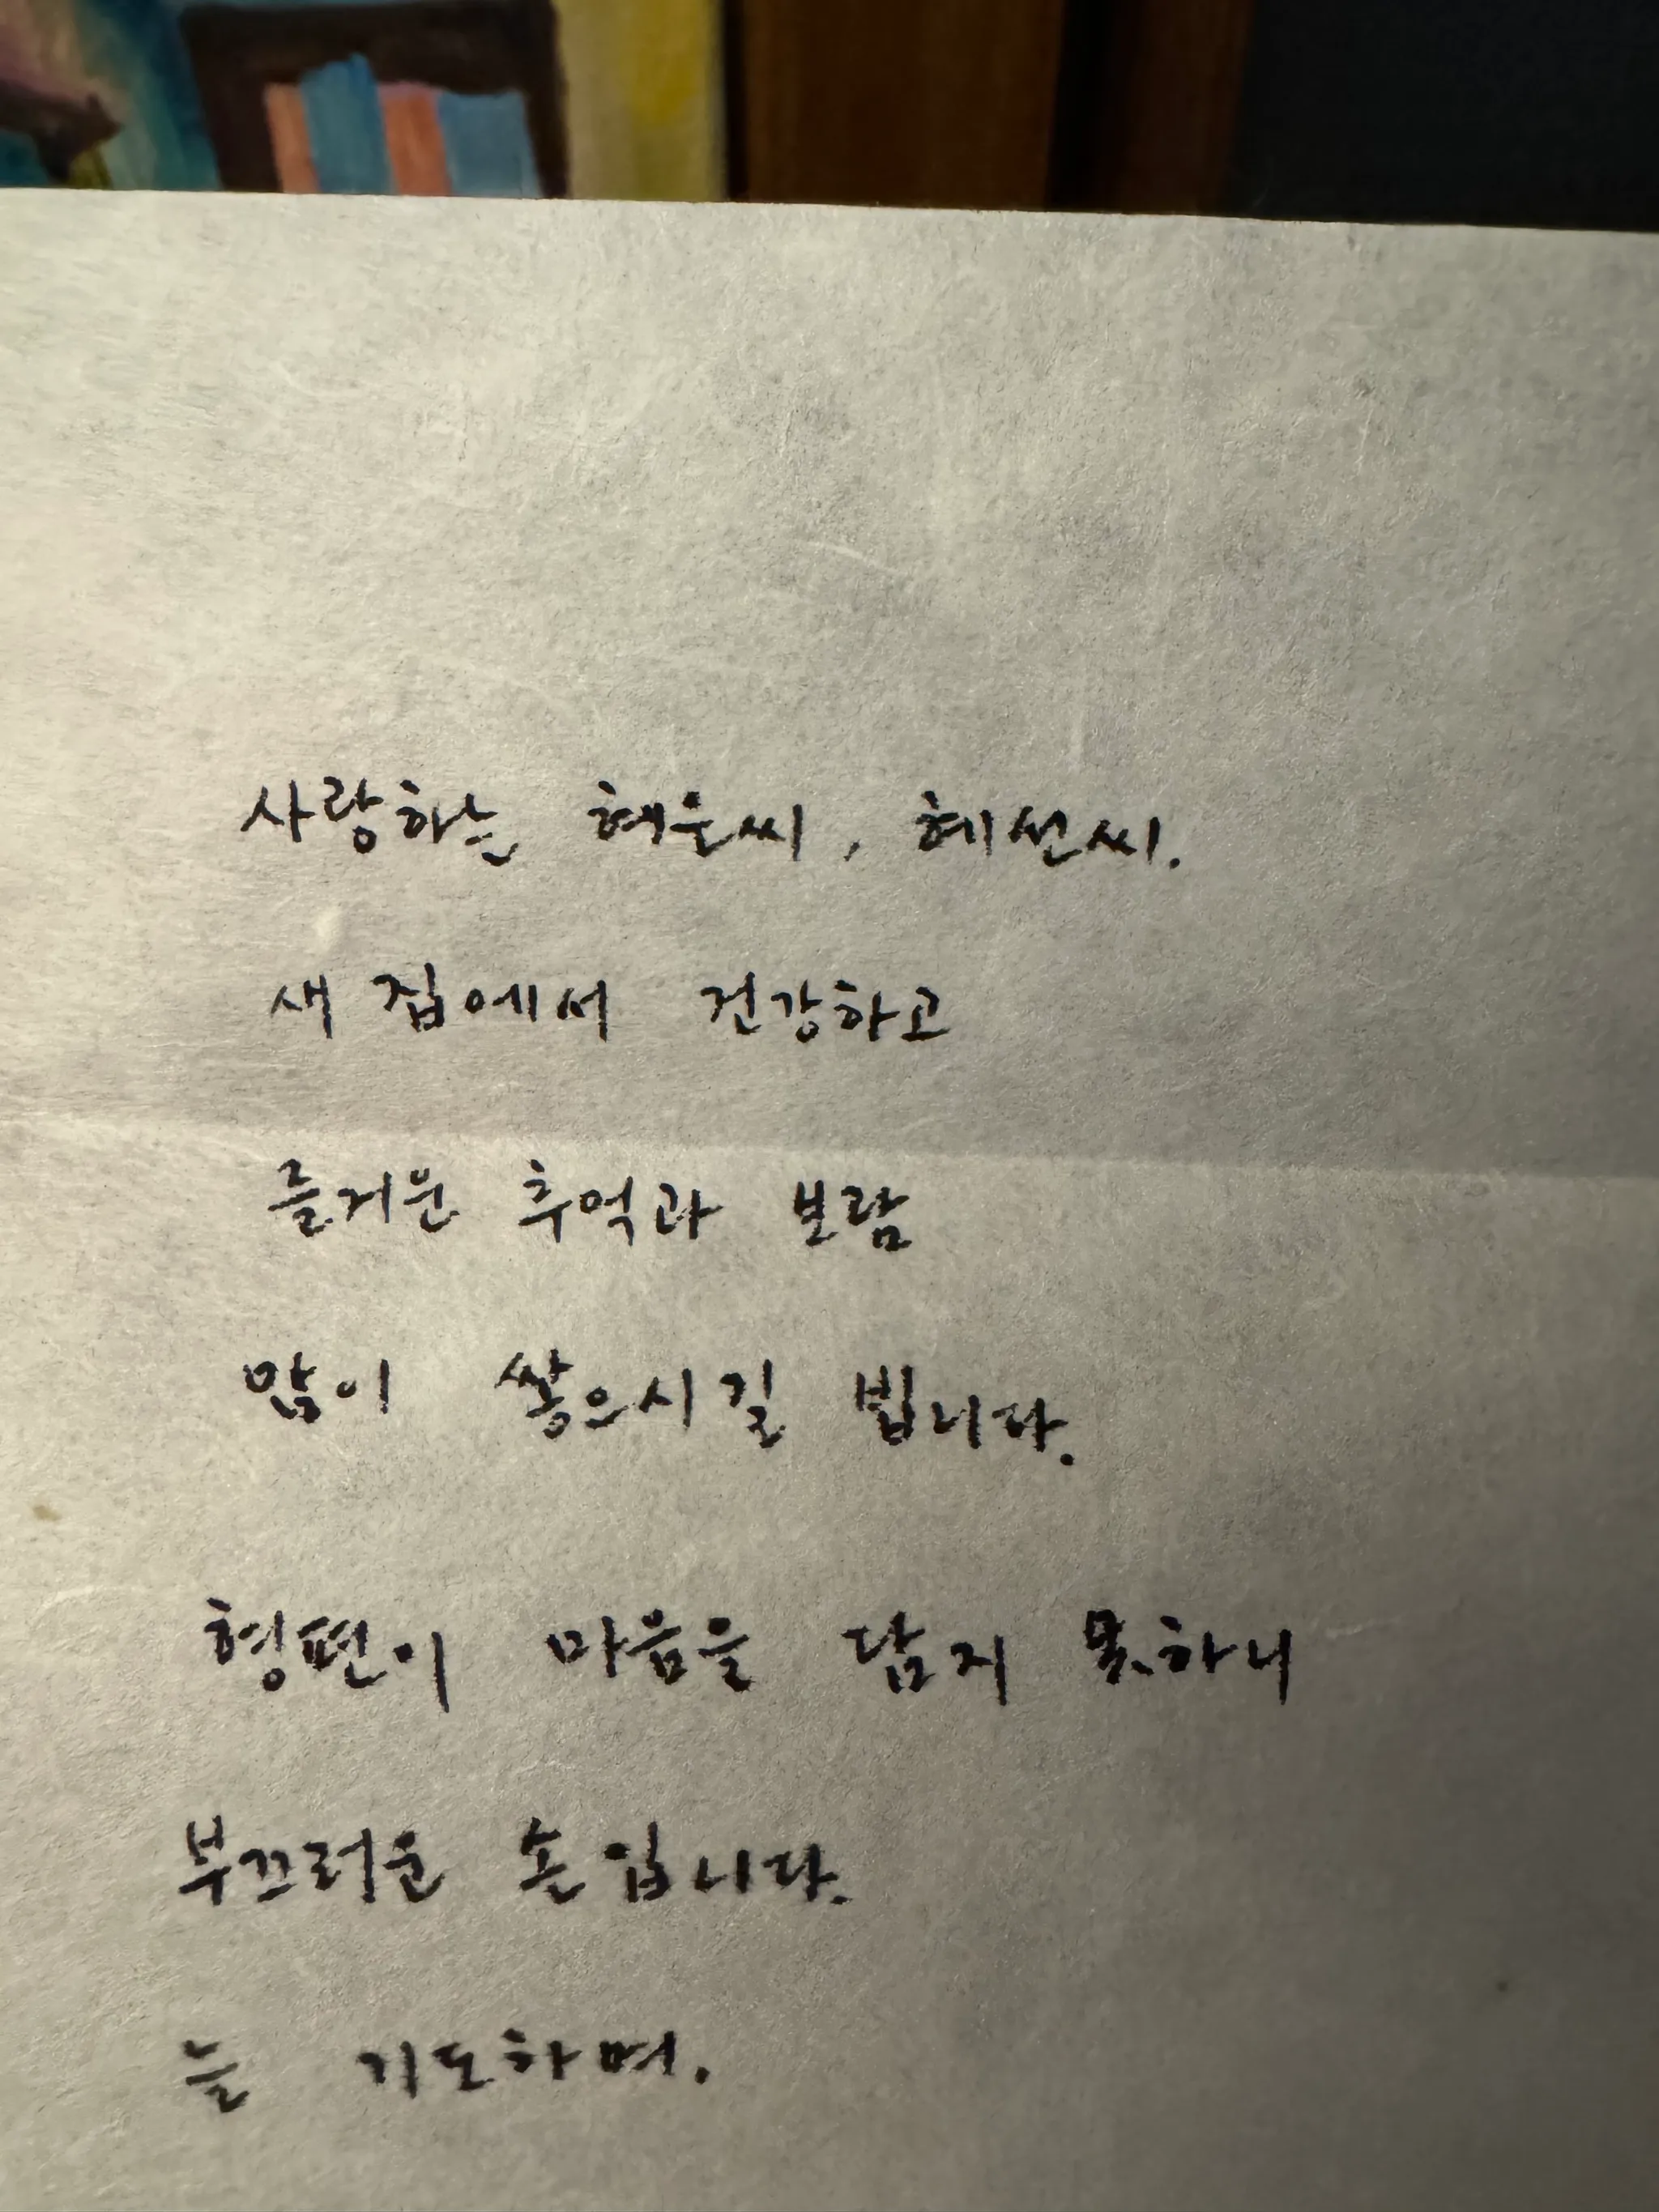 사랑하는 혜운씨, 혜선씨.
새 집에서 건강하고
즐거운 추억과 보람
많이 쌓으시길 빕니다.
형편이 마음을 담지 못하니
부끄러운 손입니다.
늘 기도하며.